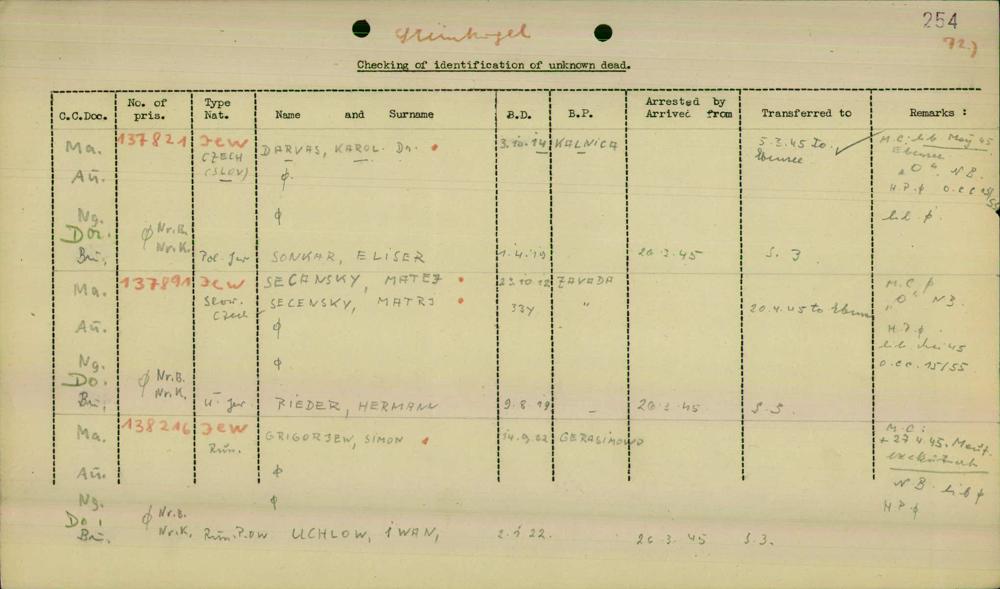 254
Steinkogel
72.)
Checking of identification of unknown dead.
C.C.Doc. No. of pris. Type Nat. Name and Surname B.D. B.P. Arrested by Arrived from Transferred to Remarks :
Ma. 137821 Jew CZECH (SLOV) DARVAS, KAROL. Dr. 3.10.14 KALNICA 5.3.45 To. Ebensee M.C: lib May 45 Ebensee
Au. ϕ "O". N.B.
H.P. ϕ O.CC 15/55
Ng. ϕ lib ϕ.
Do. ϕ Nr.B.
Bu. Nr.K. Pol. Jew SONKAR, ELISER 1.4.19 26.3.45 S. 3.
Ma. 137891 Jew SECANSKY, MATEJ 23.10.12 ZAVADA M.C ϕ
Slow. Czech SECENSKY, MATRJ 33Y " 20.4.45 to Ebensee "O" N.B.
Au. ϕ H.P ϕ.
lib Mai 45
Ng. ϕ O.CC. 15/55
Do. ϕ Nr.B.
Bu. Nr.K. U. Jew RIEDER, HERMANN 9.8.19 - 26.3.45 S.3.
Ma. 138216 Jew Rum. GRIGORJEW, SIMON 14.9.02 GERASIMOWO M.C:
+ 27.4.45. Maut.
Au. ϕ N.B. lib ϕ
Ng. ϕ H.P ϕ
Do. ϕ Nr.B.
Bu. Nr.K. Rum. P.OW UCHLOW, IWAN, 2.1.22. 26.3.45 S.3.